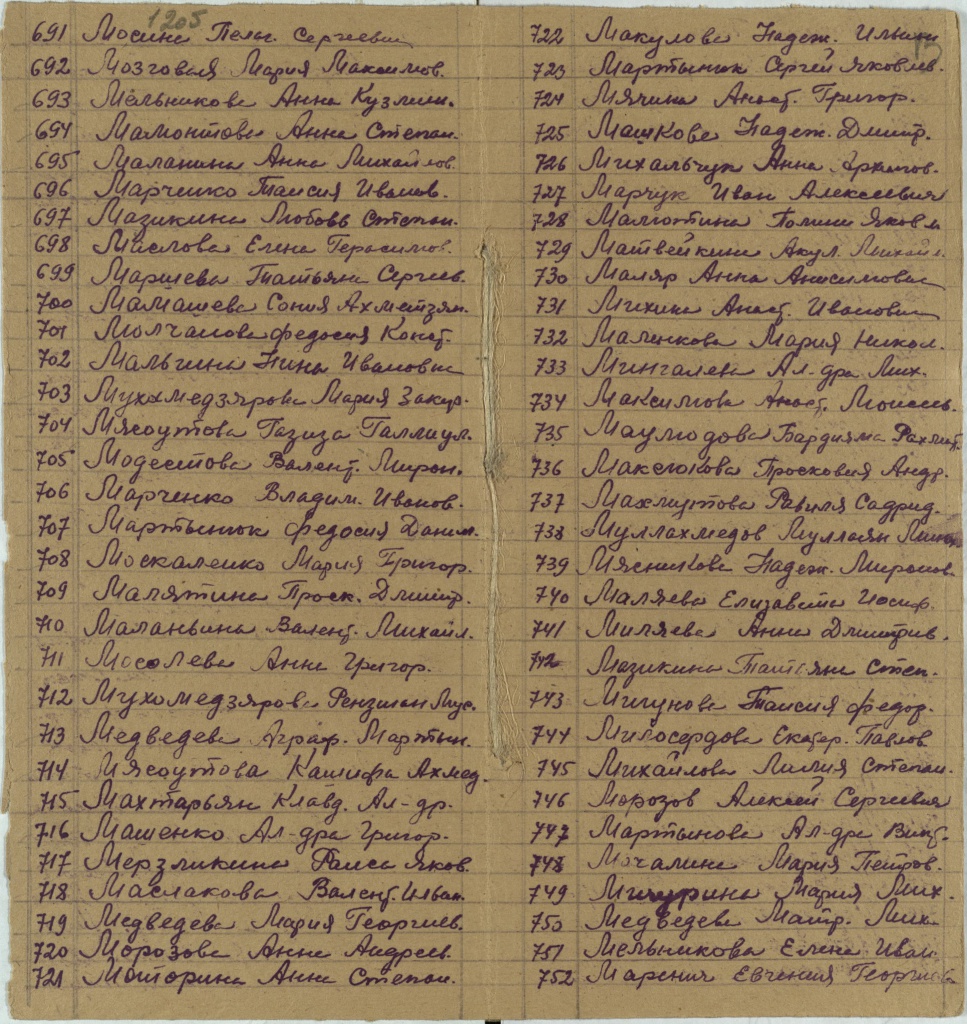 1205
15
691 Мосина Пелаг. Сергеевн
692 Мозговая Мария Максимов.
693 Мельникова Анна Кузмин.
694 Мамонтова Анна Степан.
695 Маланина Анна Михайлов.
696 Марченко Таисия Иванов.
697 Мазикина Любовь Степан.
698 Маслова Елена Герасимов.
699 Маршева Татьяна Сергеев.
700 Мамашева Сония Ахметзян.
701 Молчанова федосия Конст.
702 Мальгина Нина Ивановна
703 Мухамедзярова Мария Закир.
704 Мясоутова Газиза Галлиул.
705 Модестова Валент. Мирон.
706 Марченко Владим. Иванов.
707 Мартынюк федосия Данил.
708 Москаленко Мария Григор.
709 Малятина Проск. Дмитр.
710 Маланьина Валент. Михайл.
711 Мосолева Анна Григор.
712 Мухомедзярова Рензиман Мус.
713 Медведева Аграф. Мартын.
714 Мясоутова Кашифа Ахмед.
715 Махтарьян Клавд. Ал-др.
716 Машенко Ал-дра Григор.
717 Мерзликина Раиса Яков.
718 Маслакова Валент. Иван.
719 Медведева Мария Георгиев.
720 Морозова Анна Андреев.
721 Моторина Анна Степан.
722 Макулова Надеж. Ильин
723 Мартынюк Сергей Яковлев.
724 Мячина Анаст. Григор.
725 Машкова Надеж. Дмитр.
726 Михальчук Анна Архипов.
727 Марчук Иван Алексеевич
728 Малютина Полин Яковл
729 Матвейкина Акул. Михайл.
730 Маляр Анна Анисимовна
731 Михина Анаст. Ивановн
732 Маленкова Мария Никол.
733 Мингалева Ал-дра Мих.
734 Максимова Анаст. Моисеев.
735 Маумодова Бардияма Рахмат.
736 Макслюкова Просковия Андр.
737 Махмутова Равиля Садрид.
738 Муллахмедов Муллаян Мин
739 Мясникова Надеж. Миронов.
740 Маляева Елизавета Иосиф.
741 Миляева Анна Дмитрив.
742 Мазикина Татьяна Степ.
743 Мигунова Таисия федор.
744 Милосердова Екатер. Павлов
745 Михайлова Лилия Степан.
746 Морозов Алексей Сергеевич
747 Мартынова Ал-дра Викт.
748 Мочалина Мария Петров.
749 Мичурина Мария Мих.
750 Медведева Матр. Мих.
751 Мельникова Елена Иван
752 Маренич Евгения Георгиев